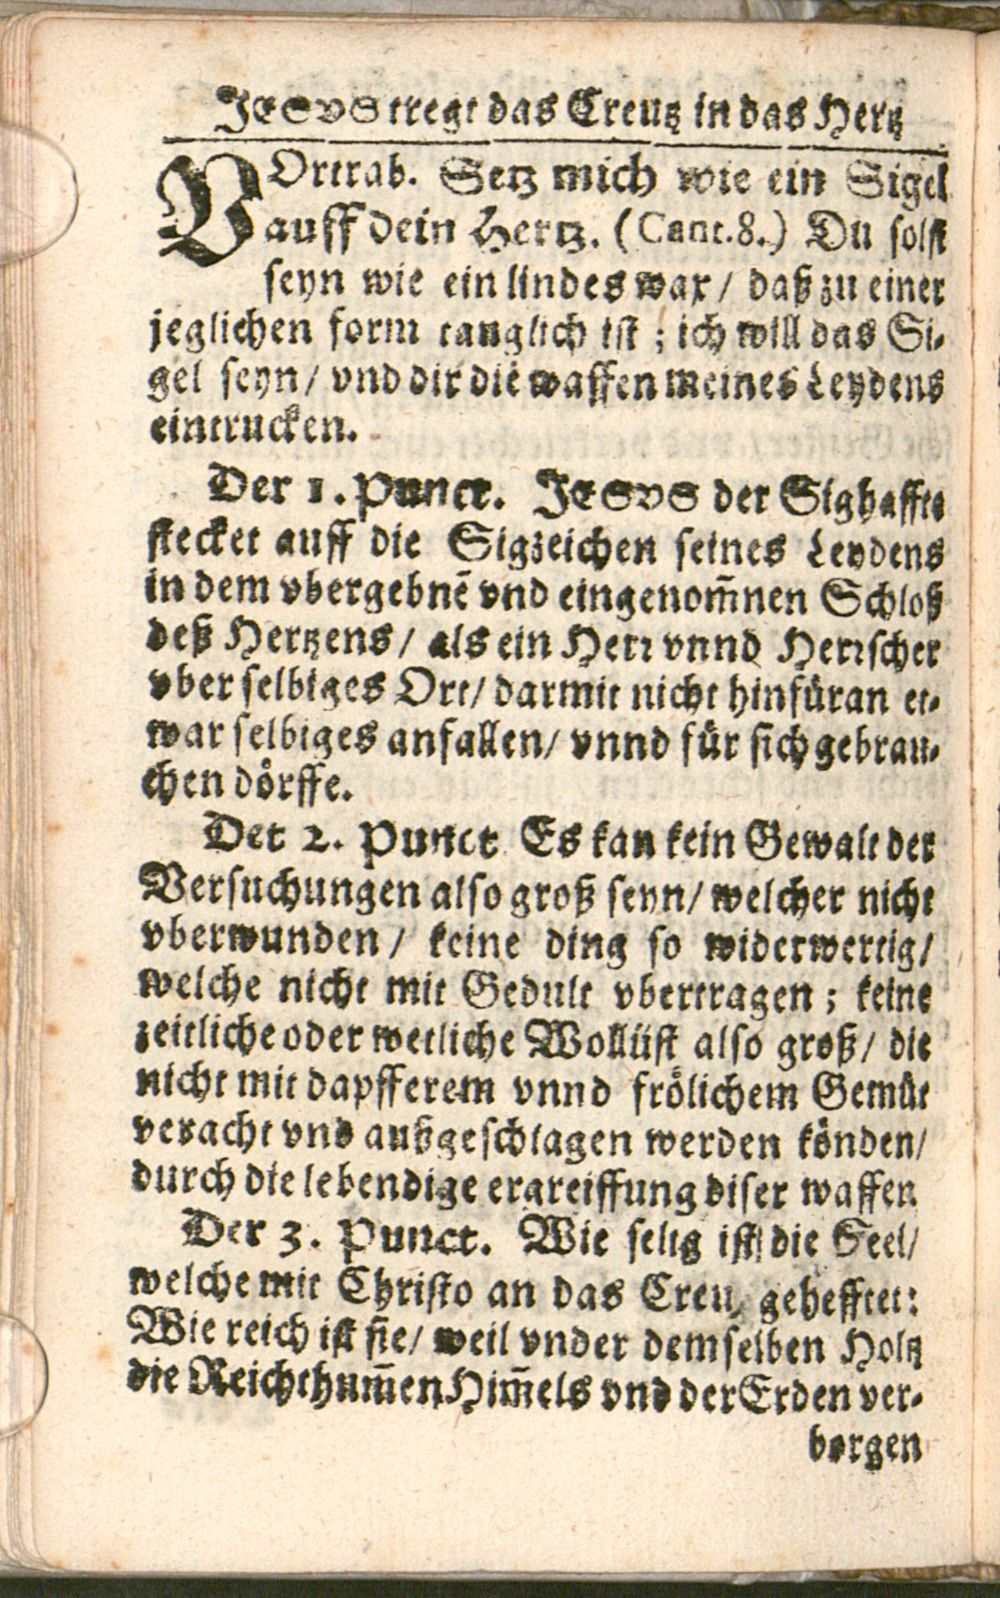 JESVS tregt das Creutz in das Hertz
VOrtrab. Setz mich wie ein Sigel
auff dein Hertz. (Cant. 8.) Du solst
seyn wie ein lindes wax / daß zu einer
jeglichen form tauglich ist ; ich will das Si-
gel seyn / vnd dir die waffen meines Leydens
eintrucken.
Der 1. Punct. JESVS der Sighaffte
stecket auff die Sigzeichen seines Leydens
in dem vbergebnē vnd eingenom̄nen Schloß
deß Hertzens / als ein Herr vnnd Herrscher
vber selbiges Ort / darmit nicht hinfüran et-
war selbiges anfallen / vnnd für sich gebrau-
chen dörffe.
Der 2. Punct Es kan kein Gewalt der
Versuchungen also groß seyn / welcher nicht
vberwunden / keine ding so widerwertig /
welche nicht mit Gedult vbertragen ; keine
zeitliche oder weltliche Wollüst also groß / die
nicht mit dapfferem vnnd frölichem Gemüt
veracht vnd außgeschlagen werden könden /
durch die lebendige ergreiffung diser waffen
Der 3. Punct. Wie selig ist die Seel /
welche mit Christo an das Creu, gehefftet :
Wie reich ist sie / weil vnder demselben Holtz
die Reichthum̄en Him̄els vnd der Erden ver-
borgen